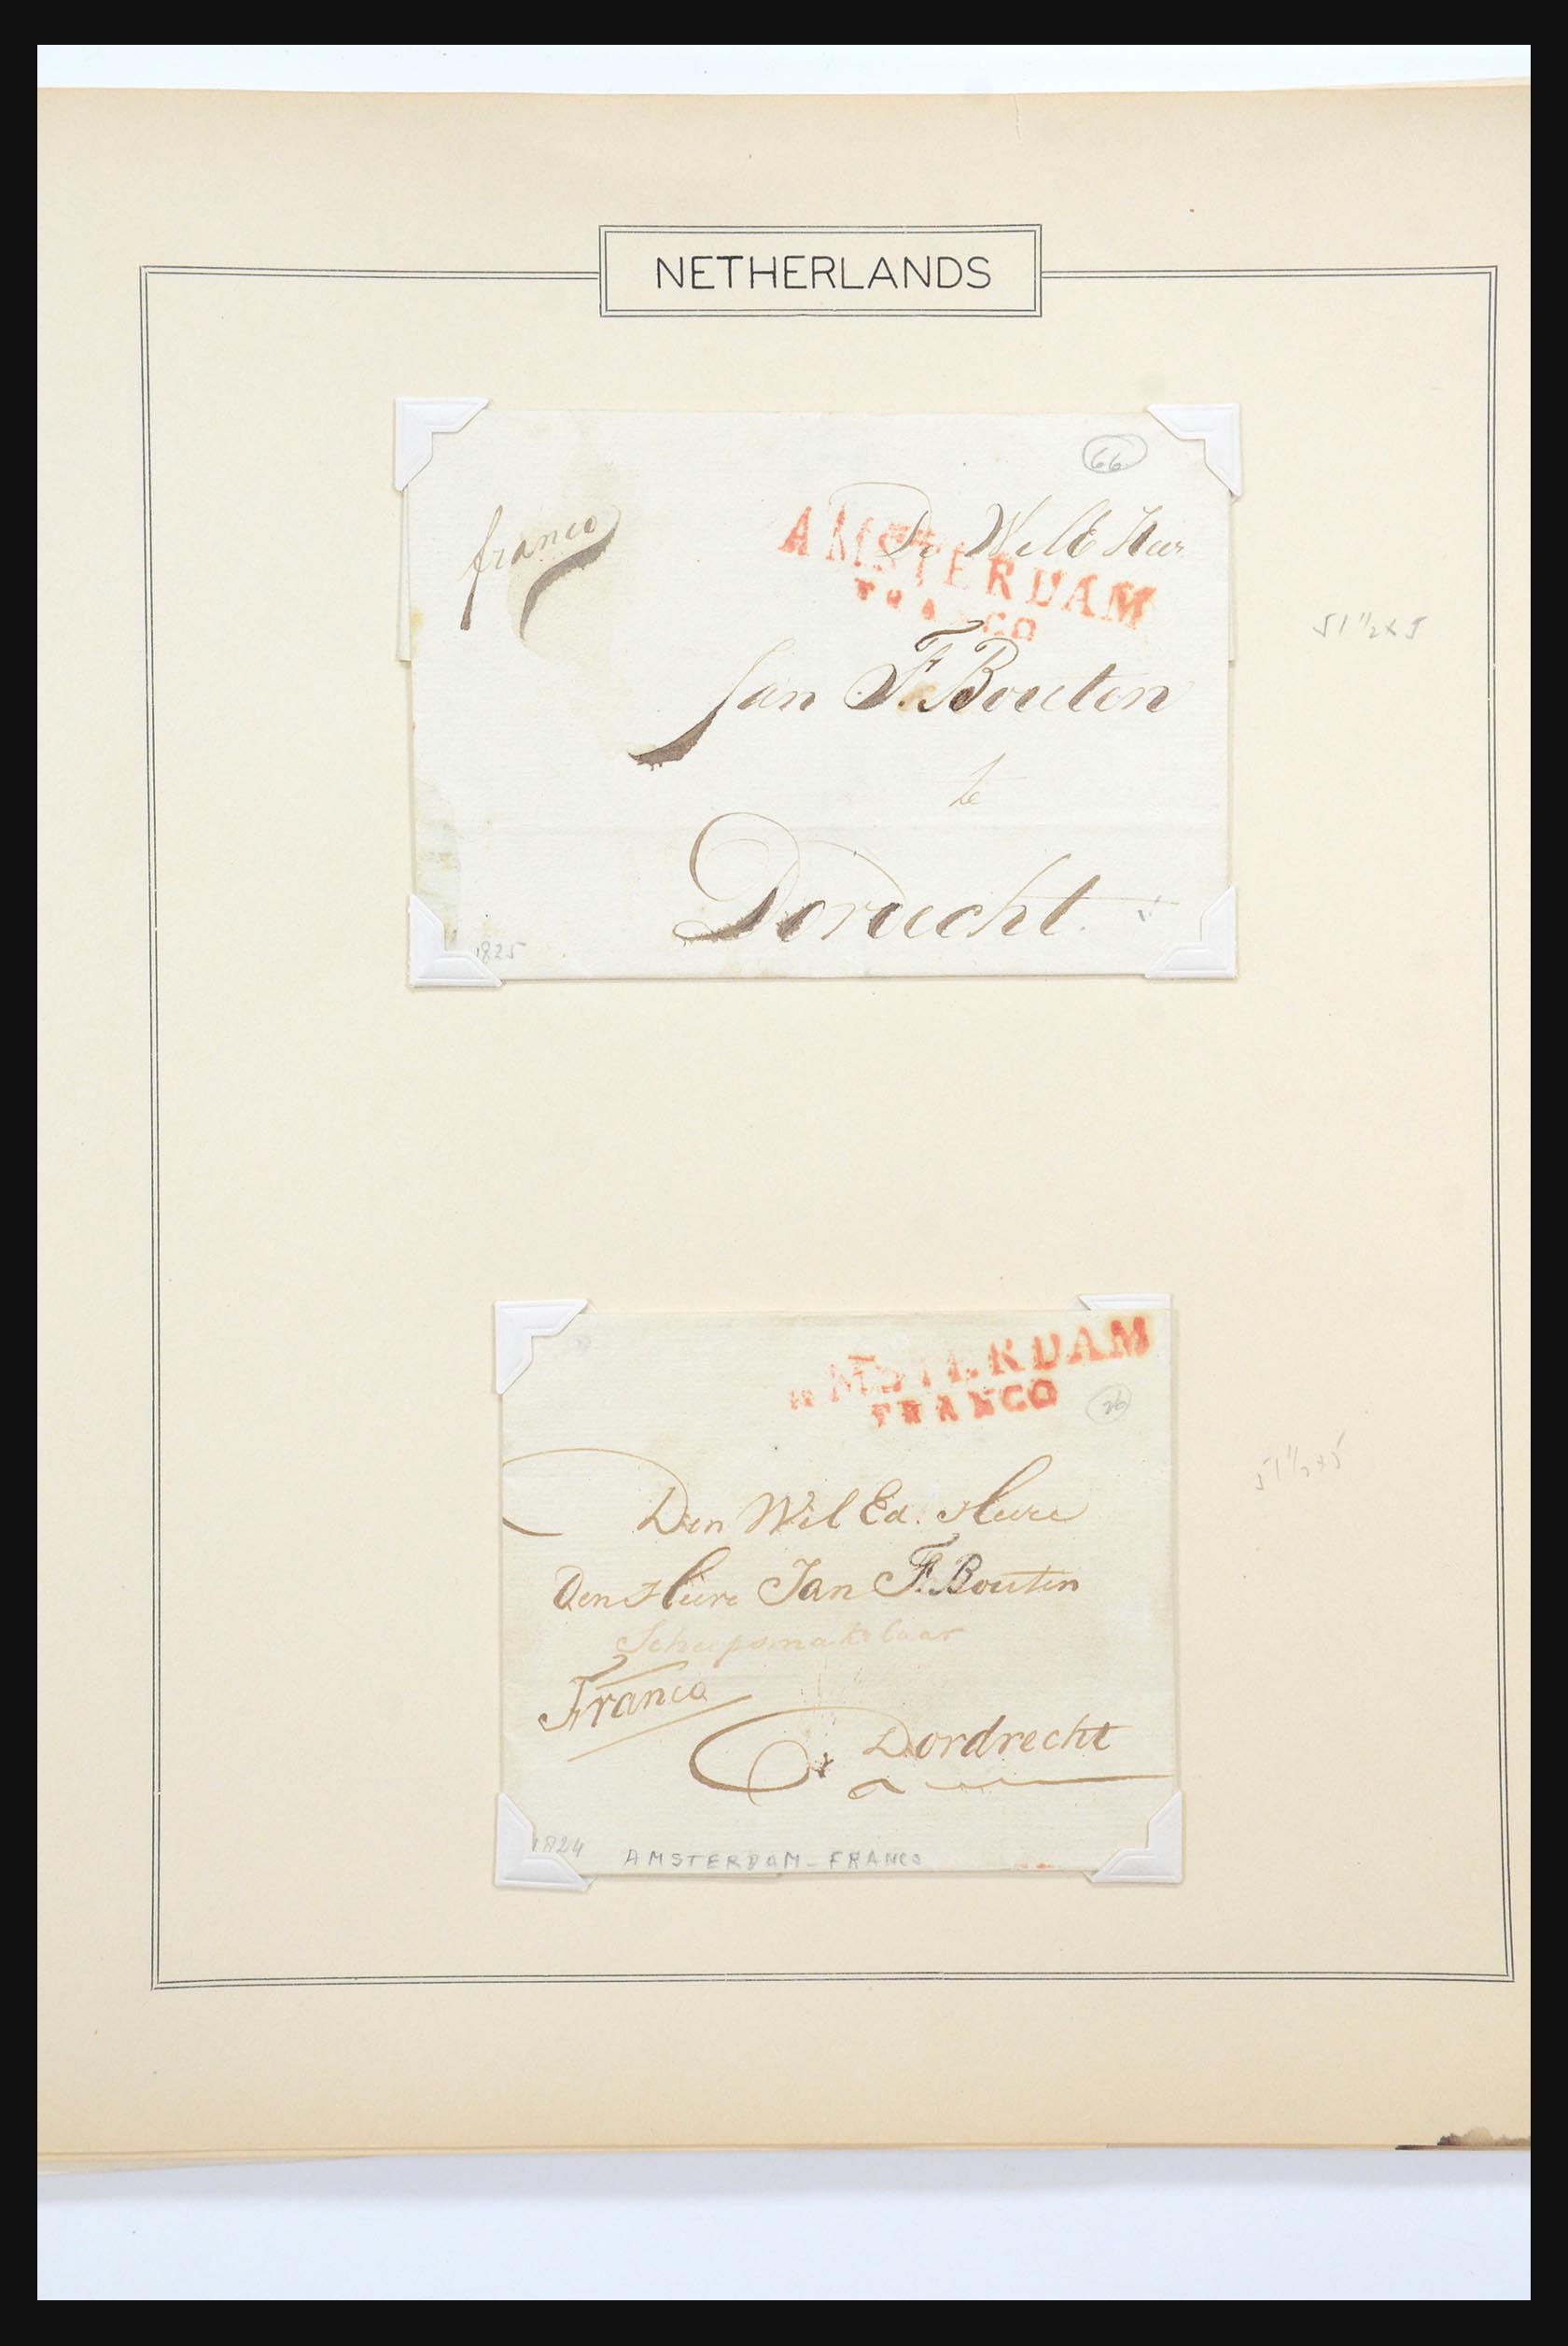 NETHERLANDS
66
franco
De Wel E Heer
AMSTERDAM
FRANCO
51 1/2 x 5
Jan F. Bouten
te
Dordrecht.
1825
AMSTERDAM
FRANCO
26
51 1/2 x 5
Den Wel Ed. Heere
den Heere Jan F. Bouten
Scheepsmakelaar
Franco
Dordrecht
1824
AMSTERDAM - FRANCO